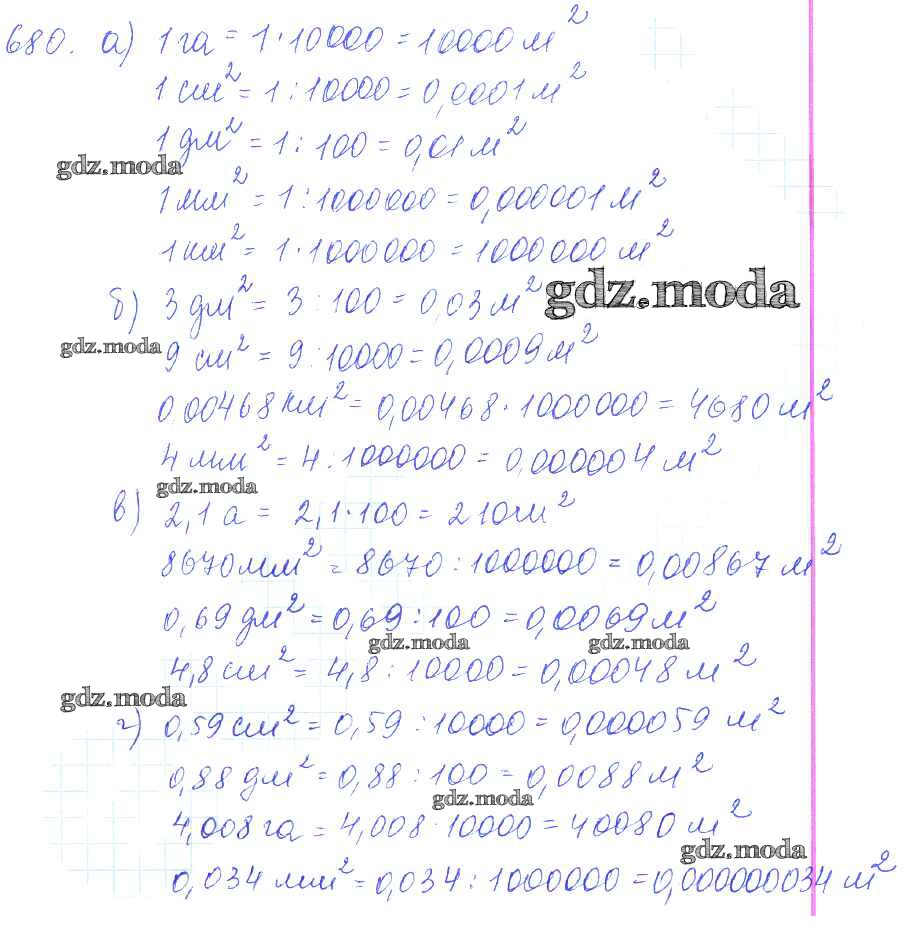 680. а) 1 га = 1·10000 = 10000 м²
1 см² = 1:10000 = 0,0001 м²
1 дм² = 1:100 = 0,01 м²
gdz.moda
1 мм² = 1:1000000 = 0,000001 м²
1 км² = 1·1000000 = 1000000 м²
б) 3 дм² = 3:100 = 0,03 м²
gdz.moda
gdz.moda
9 см² = 9:10000 = 0,0009 м²
0,00468 км² = 0,00468·1000000 = 4680 м²
4 мм² = 4:1000000 = 0,000004 м²
gdz.moda
в) 2,1 а = 2,1·100 = 210 м²
8670 мм² = 8670:1000000 = 0,00867 м²
0,69 дм² = 0,69:100 = 0,0069 м²
gdz.moda gdz.moda
4,8 см² = 4,8:10000 = 0,00048 м²
gdz.moda
г) 0,59 см² = 0,59:10000 = 0,000059 м²
0,88 дм² = 0,88:100 = 0,0088 м²
gdz.moda
4,008 га = 4,008·10000 = 40080 м²
gdz.moda
0,034 мм² = 0,034:1000000 = 0,000000034 м²